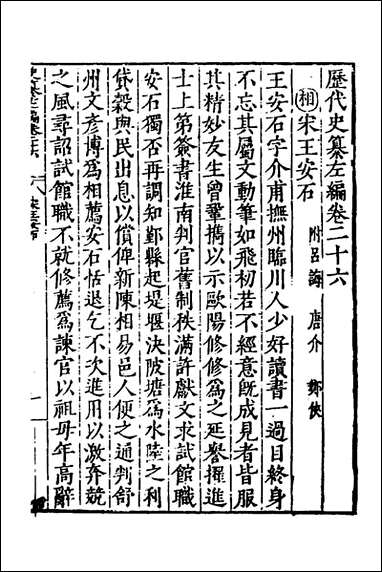 歷代史纂左編卷二十六
相 宋王安石 附呂誨 唐介 鄭俠
王安石字介甫撫州臨川人少好讀書一過目終身
不忘其屬文動筆如飛初若不經意旣成見者皆服
其精妙友生曾鞏擕以示歐陽修修爲之延譽擢進
士上第簽書淮南判官舊制秩滿許獻文求試館職
安石獨否再調知鄞縣起堤堰決陂塘爲水陸之利
貸穀與民出息以償俾新陳相易邑人便之通判舒
州文彥博爲相薦安石恬退乞不次進用以激奔競
之風尋詔試館職不就修薦爲諫官以祖母年高辭